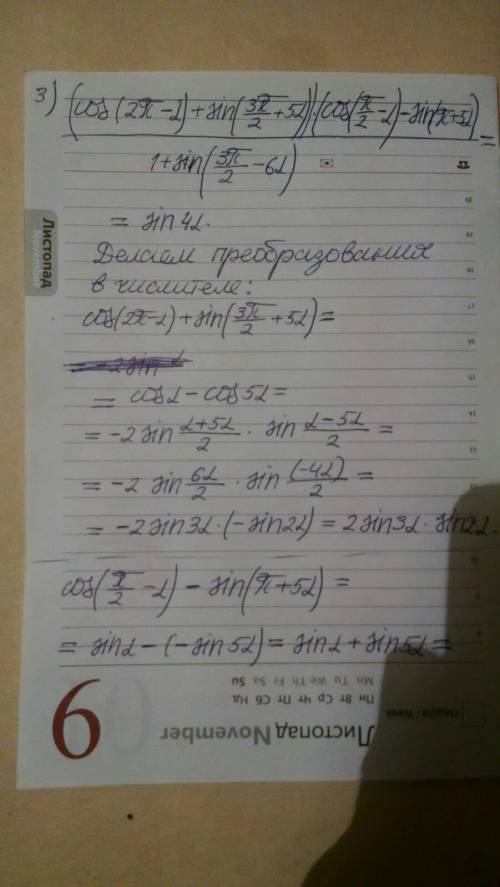 3) (cos(2π-α)+sin(3π/2+5α))·(cos(π/2-α)-sin(π+5α)) =
1+sin(3π/2-6α)
= sin4α.
Делаем преобразования
в числителе:
cos(2π-α)+sin(3π/2+5α)=
= -2sin α
= cosα-cos5α=
= -2 sin α+5α/2 · sin α-5α/2 =
= -2 sin 6α/2 · sin (-4α)/2 =
= -2sin3α·(-sin2α) = 2sin3α·sin2α.
cos(π/2-α) - sin(π+5α) =
= sinα-(-sin5α)= sinα+sin5α=
Листопад
November
20
19
18
17
16
15
14
13
12
6
Пн Вт Ср Чт Пт Сб Нд
Mn Tu We Th Fr Sa Su
Листопад November
Неділя / Week